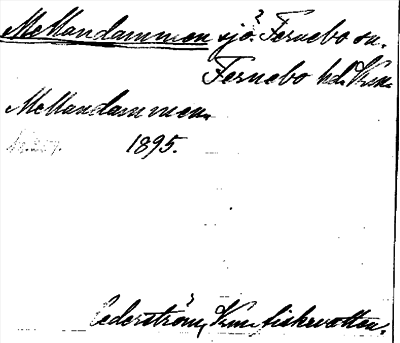 Mellandammen sjö? Fernebo sn.
Fernebo hd. Vrm.
Mellandammen.
1895.
Cederström, Vrm. fiskevatten.